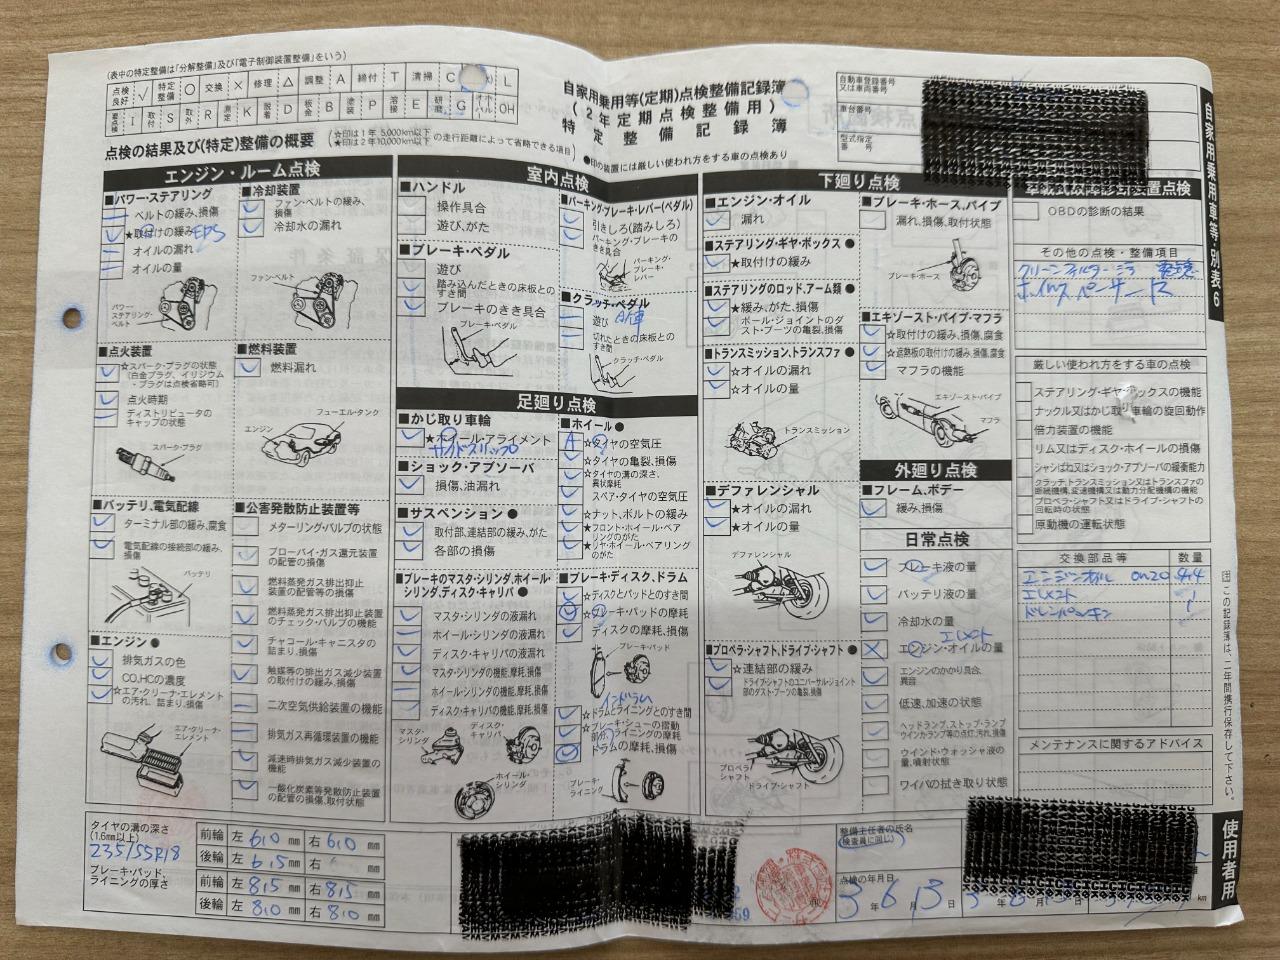 (表中の特定整備は「分解整備」及び「電子制御装置整備」をいう)
点検良好 ✓ 特定整備 ○ 交換 × 修理 △ 調整 A 締付 T 清掃 C L
要点検 I 取付 S 取外 R 測定 K 脱着 D 板金 B 塗装 P 溶接 E 研磨 G オーバーホール OH
点検の結果及び(特定)整備の概要
☆印は1年 5,000km以下
★印は2年10,000km以下
の走行距離によって省略できる項目
自家用乗用等(定期)点検整備記録簿
(2年定期点検整備用)
特定整備記録簿
●印の装置には厳しい使われ方をする車の点検あり
自動車登録番号又は車両番号
車台番号
型式指定番号
自家用乗用車等・別表6
エンジン・ルーム点検
■パワー・ステアリング
ベルトの緩み,損傷
★取付けの緩み EPS
オイルの漏れ
オイルの量
パワー・ステアリング・ベルト
■冷却装置
ファン・ベルトの緩み,損傷
冷却水の漏れ
ファン・ベルト
■点火装置
☆スパーク・プラグの状態
(白金プラグ、イリジウム・プラグは点検省略可)
点火時期
ディストリビュータのキャップの状態
スパーク・プラグ
■燃料装置
燃料漏れ
フューエル・タンク
エンジン
■バッテリ,電気配線
ターミナル部の緩み,腐食
電気配線の接続部の緩み,損傷
バッテリ
■エンジン ●
排気ガスの色
CO,HCの濃度
☆エア・クリーナ・エレメントの汚れ、詰まり,損傷
エア・クリーナ・エレメント
■公害発散防止装置等
メターリング・バルブの状態
ブローバイ・ガス還元装置の配管の損傷
燃料蒸発ガス排出抑止装置の配管等の損傷
燃料蒸発ガス排出抑止装置のチェック・バルブの機能
チャコール・キャニスタの詰まり,損傷
触媒等の排出ガス減少装置の取付けの緩み,損傷
二次空気供給装置の機能
排気ガス再循環装置の機能
減速時排気ガス減少装置の機能
一酸化炭素等発散防止装置の配管の損傷,取付状態
室内点検
■ハンドル
操作具合
遊び,がた
■ブレーキ・ペダル
遊び
踏み込んだときの床板とのすき間
ブレーキのきき具合
ブレーキ・ペダル
■パーキング・ブレーキ・レバー(ペダル)
引きしろ(踏みしろ)
パーキング・ブレーキのきき具合
パーキング・ブレーキ・レバー
■クラッチ・ペダル
遊び
切れたときの床板とのすき間
クラッチ・ペダル
足廻り点検
■かじ取り車輪
★ホイール・アライメント
サイドスリップ
■ショック・アブソーバ
損傷,油漏れ
■サスペンション ●
取付部,連結部の緩み,がた
各部の損傷
■ホイール ●
A ☆タイヤの空気圧
☆タイヤの亀裂,損傷
☆タイヤの溝の深さ,異状摩耗
スペア・タイヤの空気圧
☆ナット,ボルトの緩み
★フロント・ホイール・ベアリングのがた
★リヤ・ホイール・ベアリングのがた
■ブレーキのマスタ・シリンダ,ホイール・シリンダ,ディスク・キャリパ ●
マスタ・シリンダの液漏れ
ホイール・シリンダの液漏れ
ディスク・キャリパの液漏れ
マスタ・シリンダの機能,摩耗,損傷
ホイール・シリンダの機能,摩耗,損傷
ディスク・キャリパの機能,摩耗,損傷
マスタ・シリンダ
ディスク・キャリパ
ホイール・シリンダ
■ブレーキ・ディスク,ドラム
☆ディスクとパッドとのすき間
☆ブレーキ・パッドの摩耗
ディスクの摩耗,損傷
ブレーキ・パッド
インドラム
☆ドラムとライニングとのすき間
☆ブレーキ・シューの摺動部分,ライニングの摩耗
ドラムの摩耗,損傷
ブレーキ・ライニング
下廻り点検
■エンジン・オイル
漏れ
■ステアリング・ギヤ・ボックス ●
★取付けの緩み
■ステアリングのロッド,アーム類 ●
★緩み,がた,損傷
ボール・ジョイントのダスト・ブーツの亀裂,損傷
■トランスミッション,トランスファ ●
☆オイルの漏れ
☆オイルの量
トランスミッション
■デファレンシャル
☆オイルの漏れ
☆オイルの量
デファレンシャル
■プロペラ・シャフト,ドライブ・シャフト ●
☆連結部の緩み
ドライブ・シャフトのユニバーサル・ジョイント部のダスト・ブーツの亀裂,損傷
プロペラ・シャフト
ドライブ・シャフト
■ブレーキ・ホース,パイプ
漏れ,損傷,取付状態
ブレーキ・ホース
■エキゾースト・パイプ・マフラ
☆取付けの緩み,損傷,腐食
☆遮熱板の取付けの緩み,損傷,腐食
マフラの機能
エキゾースト・パイプ
マフラ
外廻り点検
■フレーム,ボデー
緩み,損傷
日常点検
ブレーキ液の量
バッテリ液の量
冷却水の量
エレメント
エンジン・オイルの量
エンジンのかかり具合,異音
低速,加速の状態
ヘッドランプ,ストップ・ランプ,ウインカランプ等の点灯,汚れ,損傷
ウインド・ウォッシャ液の量,噴射状態
ワイパの拭き取り状態
OBDの診断の結果
その他の点検・整備項目
厳しい使われ方をする車の点検
ステアリング・ギヤ・ボックスの機能
ナックル又はかじ取り車輪の旋回動作
倍力装置の機能
リム又はディスク・ホイールの損傷
シャシばね又はショック・アブソーバの緩衝能力
クラッチ,トランスミッション又はトランスファの断続機構,変速機構又は動力分配機構の機能
プロペラ・シャフト又はドライブ・シャフトの回転時の状態
原動機の運転状態
交換部品等 数量
エンジンオイル 0W20 4.4
エレメント 1
ドレンパッキン 1
メンテナンスに関するアドバイス
囲この記録簿は、二年間携行保存して下さい。
使用者用
タイヤの溝の深さ(1.6mm以上)
235/55R18
ブレーキ・パッド,ライニングの厚さ
前輪 左 6.0 mm 右 6.0 mm
後輪 左 6.5 mm 右 mm
前輪 左 8.5 mm 右 8.5 mm
後輪 左 8.0 mm 右 8.0 mm
整備主任者の氏名
(検査員に同じ)
点検の年月日
3年6月13日
km